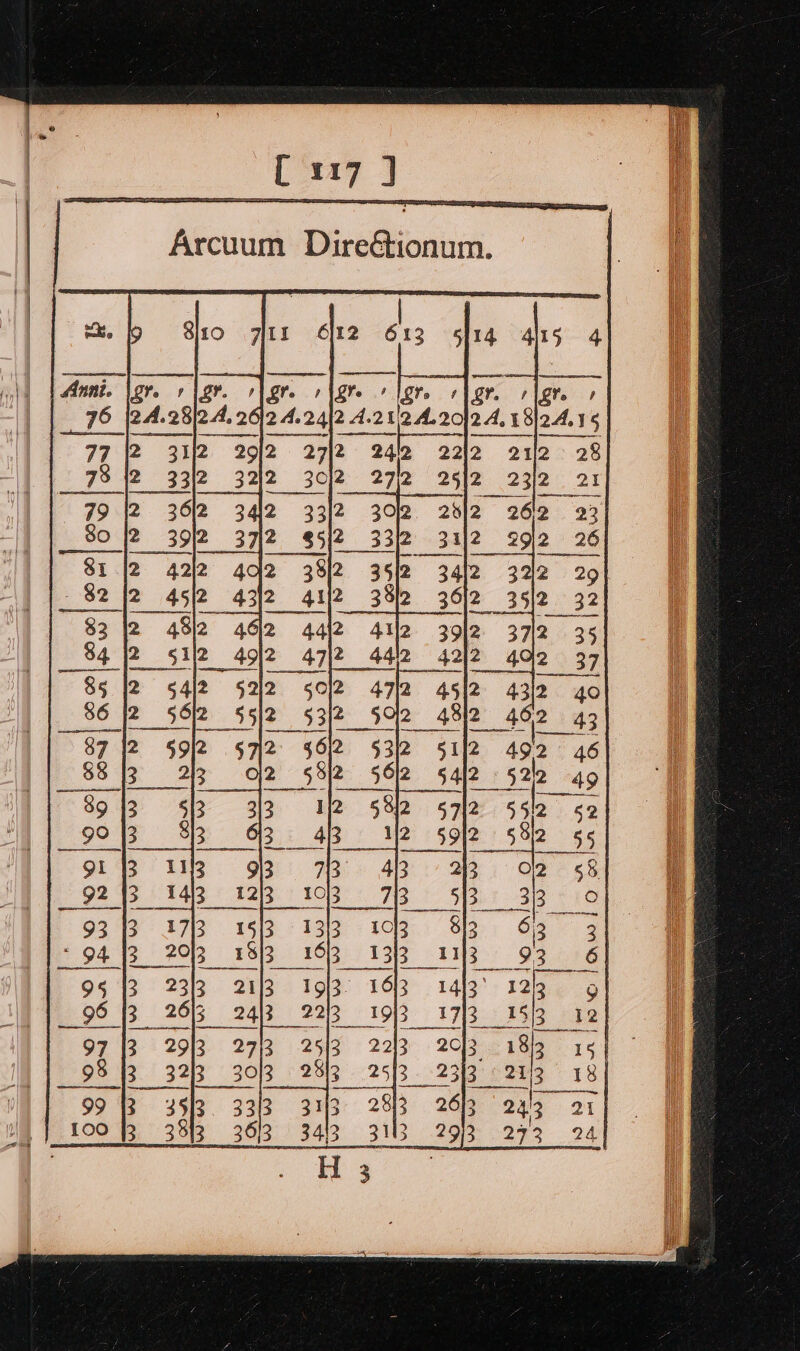 [ 117 ]
Arcuum Directionum.
æt. 9 8 10 7 11 6 12 6 13 5 14 4 15 4
Anni. gr. ′ gr. ′ gr. ′ gr. ′ gr. ′ gr. ′ gr. ′
76 2A.28 2A.26 2A.24 2A.21 2A.20 2A.18 2A.15
77 2 31 2 29 2 27 2 24 2 22 2 21 2 28
78 2 33 2 32 2 30 2 27 2 25 2 23 2 21
79 2 36 2 34 2 33 2 30 2 28 2 26 2 23
80 2 39 2 37 2 35 2 33 2 31 2 29 2 26
81 2 42 2 40 2 38 2 35 2 34 2 32 2 29
82 2 45 2 43 2 41 2 38 2 36 2 35 2 32
83 2 48 2 46 2 44 2 41 2 39 2 37 2 35
84 2 51 2 49 2 47 2 44 2 42 2 40 2 37
85 2 54 2 52 2 50 2 47 2 45 2 43 2 40
86 2 56 2 55 2 53 2 50 2 48 2 46 2 43
87 2 59 2 57 2 56 2 53 2 51 2 49 2 46
88 3 2 3 0 2 58 2 56 2 54 2 52 2 49
89 3 5 3 3 3 1 2 58 2 57 2 55 2 52
90 3 8 3 6 3 4 3 1 2 59 2 58 2 55
91 3 11 3 9 3 7 3 4 3 2 3 0 2 58
92 3 14 3 12 3 10 3 7 3 5 3 3 3 0
93 3 17 3 15 3 13 3 10 3 8 3 6 3 3
94 3 20 3 18 3 16 3 13 3 11 3 9 3 6
95 3 23 3 21 3 19 3 16 3 14 3 12 3 9
96 3 26 3 24 3 22 3 19 3 17 3 15 3 12
97 3 29 3 27 3 25 3 22 3 20 3 18 3 15
98 3 32 3 30 3 28 3 25 3 23 3 21 3 18
99 3 35 3 33 3 31 3 28 3 26 3 24 3 21
100 3 38 3 36 3 34 3 31 3 29 3 27 3 24
H 3